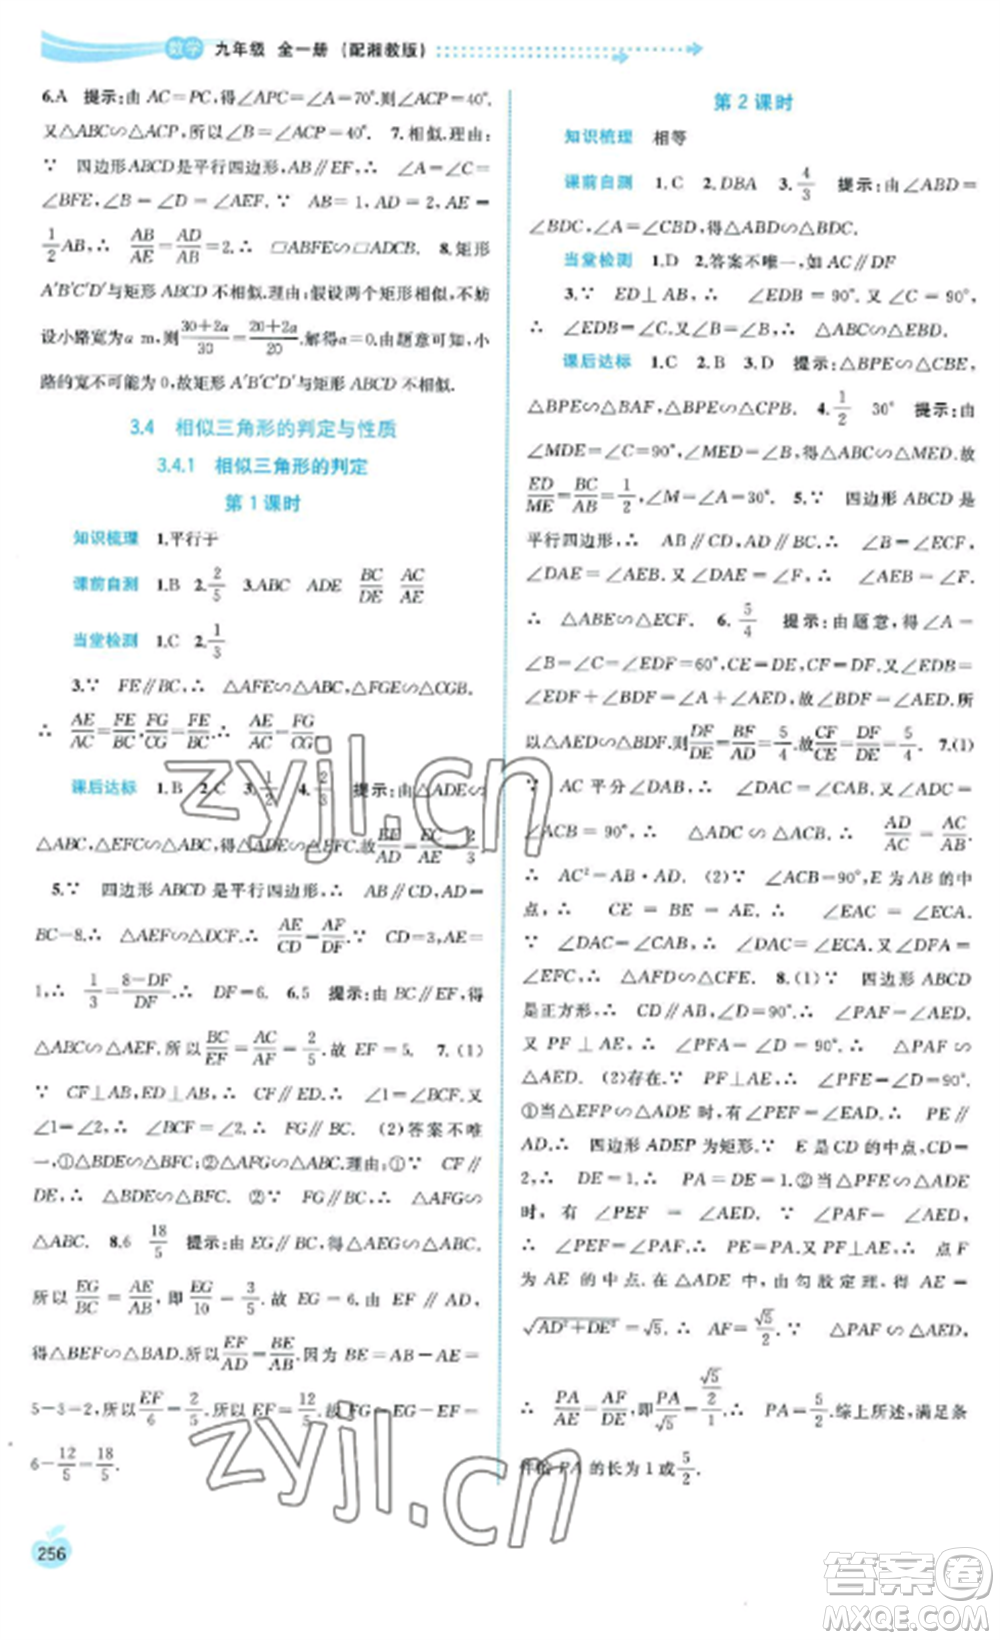 数学 九年级 全一册 (配湘教版)
6.A 提示:由 AC=PC,得∠APC=∠A=70°.则∠ACP=40°.
又△ABC∽△ACP,所以∠B=∠ACP=40°. 7.相似.理由:
∵ 四边形 ABCD 是平行四边形,AB∥EF,∴ ∠A=∠C=
∠BFE,∠ABF=∠D=∠AEF.∵ AB=1,AD=2,AE=
1/2 AB,∴ AB/AE=AD/AB=2.∴ □ABFE∽□ADCB. 8.矩形
A′B′C′D′与矩形 ABCD 不相似.理由:假设两个矩形相似,不妨
设小路宽为a m,则 (30+2a)/30=(20+2a)/20.解得a=0.由题意可知,小
路的宽不可能为 0,故矩形 A′B′C′D′与矩形 ABCD 不相似.
3.4 相似三角形的判定与性质
3.4.1 相似三角形的判定
第 1 课时
知识梳理 1.平行于
课前自测 1.B 2.2/5 3.ABC ADE BC/DE AC/AE
当堂检测 1.C 2.1/3
3.∵ FE∥BC,∴ △AFE∽△ABC,△FGE∽△CGB.
∴ AE/AC=FE/BC,FG/CG=FE/BC.∴ AE/AC=FG/CG.
课后达标 1.B 2.C 3.1/2 4.2/3 提示:由△ADE∽
△ABC,△EFC∽△ABC,得△ADE∽△EFC.故 EF/AD=EC/AE=2/3.
5.∵ 四边形 ABCD 是平行四边形,∴ AB∥CD,AD=
BC=8.∴ △AEF∽△DCF.∴ AE/CD=AF/DF.∵ CD=3,AE=
1,∴ 1/3=(8-DF)/DF.∴ DF=6. 6.5 提示:由 BC∥EF,得
△ABC∽△AFE.所以 BC/EF=AC/AF=2/5.故 EF=5. 7.(1)
∵ CF⊥AB,ED⊥AB,∴ DE∥CF.∴ ∠1=∠BCF.∵
∠1=∠2,∴ ∠2=∠BCF.∴ FG∥BC. (2)答案不唯
一,①△BDE∽△BFC;②△AFG∽△ABC.理由:①∵ CF∥
DE,∴ △BDE∽△BFC. ②∵ FG∥BC,∴ △AFG∽
△ABC. 8.6 18/5 提示:由 EG∥BC,得△AEG∽△ABC.
所以 EG/BC=AE/AB,即 EG/10=3/5.故 EG=6.由 EF∥AD,
得△BEF∽△BAD.所以 EF/AD=BE/AB.因为 BE=AB-AE=
5-3=2,所以 EF/6=2/5.所以 EF=12/5.故 FG=EG-EF=
6-12/5=18/5.
256
第 2 课时
知识梳理 相等
课前自测 1.C 2.DBA 3.4/3 提示:由∠ABD=
∠BDC,∠A=∠CBD,得△ABD∽△BDC.
当堂检测 1.D 2.答案不唯一,如 AC∥DF
3.∵ ED⊥AB,∴ ∠EDB=90°.又∠C=90°,
∴ ∠EDB=∠C.又∠B=∠B,∴ △ABC∽△EBD.
课后达标 1.C 2.B 3.D 提示:△BPE∽△CBE,
△BPE∽△BAF,△BPE∽△CPB. 4.1/2 30° 提示:由
∠MDE=∠C=90°,∠MED=∠B,得△ABC∽△MED.故
ED/ME=BC/AB=1/2,∠M=∠A=30°. 5.∵ 四边形 ABCD 是
平行四边形,∴ AB∥CD,AD∥BC.∴ ∠B=∠ECF,
∠DAE=∠AEB.又∠DAE=∠F,∴ ∠AEB=∠F.
∴ △ABE∽△ECF. 6.5/4 提示:由题意,得∠A=
∠B=∠C=∠EDF=60°,CE=DE,CF=DF.∠BDF+
∠EDF=∠BDE=∠A+∠AED,故∠BDF=∠AED.所
以△AED∽△BDF.则 DF/DE=BF/AD=5/4.故 CF/CE=DF/DE=5/4. 7.(1)
∵ AC 平分∠DAB,∴ ∠DAC=∠CAB.又∠ADC=
∠ACB=90°,∴ △ADC∽△ACB.∴ AD/AC=AC/AB.
∴ AC²=AB·AD. (2)∵ ∠ACB=90°,E 为 AB 的中
点,∴ CE=BE=AE.∴ ∠EAC=∠ECA.
∵ ∠DAC=∠CAB,∴ ∠DAC=∠ECA.又∠DFA=
∠EFC,∴ △AFD∽△CFE. 8.(1)∵ 四边形 ABCD
是正方形,∴ CD∥AB,∠D=90°.∴ ∠PAF=∠AED.
又∵ PF⊥AE,∴ ∠PFA=∠D=90°.∴ △PAF∽
△AED. (2)存在.∵ PF⊥AE,∴ ∠PFE=∠D=90°.
①当△EFP∽△ADE 时,有∠PEF=∠EAD.∴ PE∥
AD.∴ 四边形 ADEP 为矩形.∵ E 是 CD 的中点,CD=
2,∴ DE=1.∴ PA=DE=1.②当△PFE∽△ADE
时,有∠PEF=∠AED.∵ ∠PAF=∠AED,∴
∠PEF=∠PAF.∴ PE=PA.又 PF⊥AE,∴ 点 F
为 AE 的中点.在△ADE 中,由勾股定理,得 AE=
√(AD²+DE²)=√5.∴ AF=√5/2.∵ △PAF∽△AED,
∴ PA/AE=AF/DE,即 PA/√5=(√5/2)/1.∴ PA=5/2.综上所述,满足条
件的 PA 的长为 1 或 5/2.
zyjl.cn
zyjl.cn
答案圈
MXQE.COM